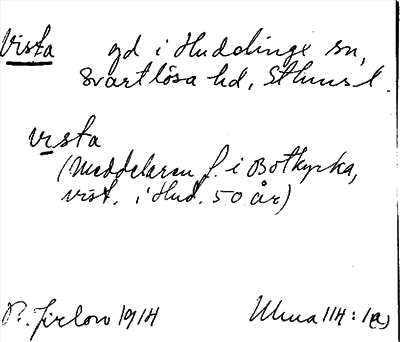 Vista gd i Huddinge sn,
Svartlösa hd, Sthms l.
vista
(Meddelaren f. i Botkyrka,
vist. i Hud. 50 år)
R. Jirlow 1914
Ulma 114: 1(a)